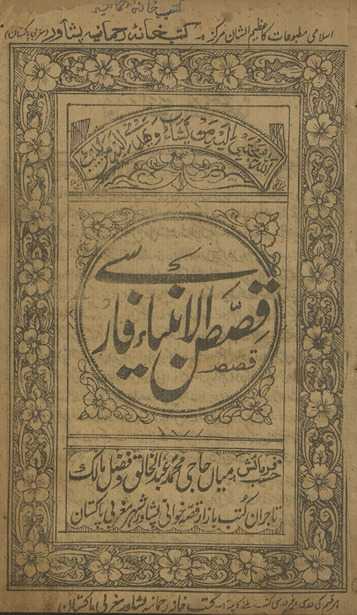 کتب خانہ رحمانیہ
اسلامی مطبوعات کا عظیم الشان مرکز۔ کتب خانہ رحمانیہ پشاور (مغربی پاکستان)
اللہ یجتبی الیہ من یشاء و یھدی الیہ من ینیب
قصص الانبیاء فارسی
قصص
حسب فرمائش میاں حاجی محمد عبد الخالق و فضل مالک
تاجران کتب بازار قصہ خوانی پشاور شہر مغربی پاکستان
کتب خانہ رحمانیہ پشاور مغربی پاکستان